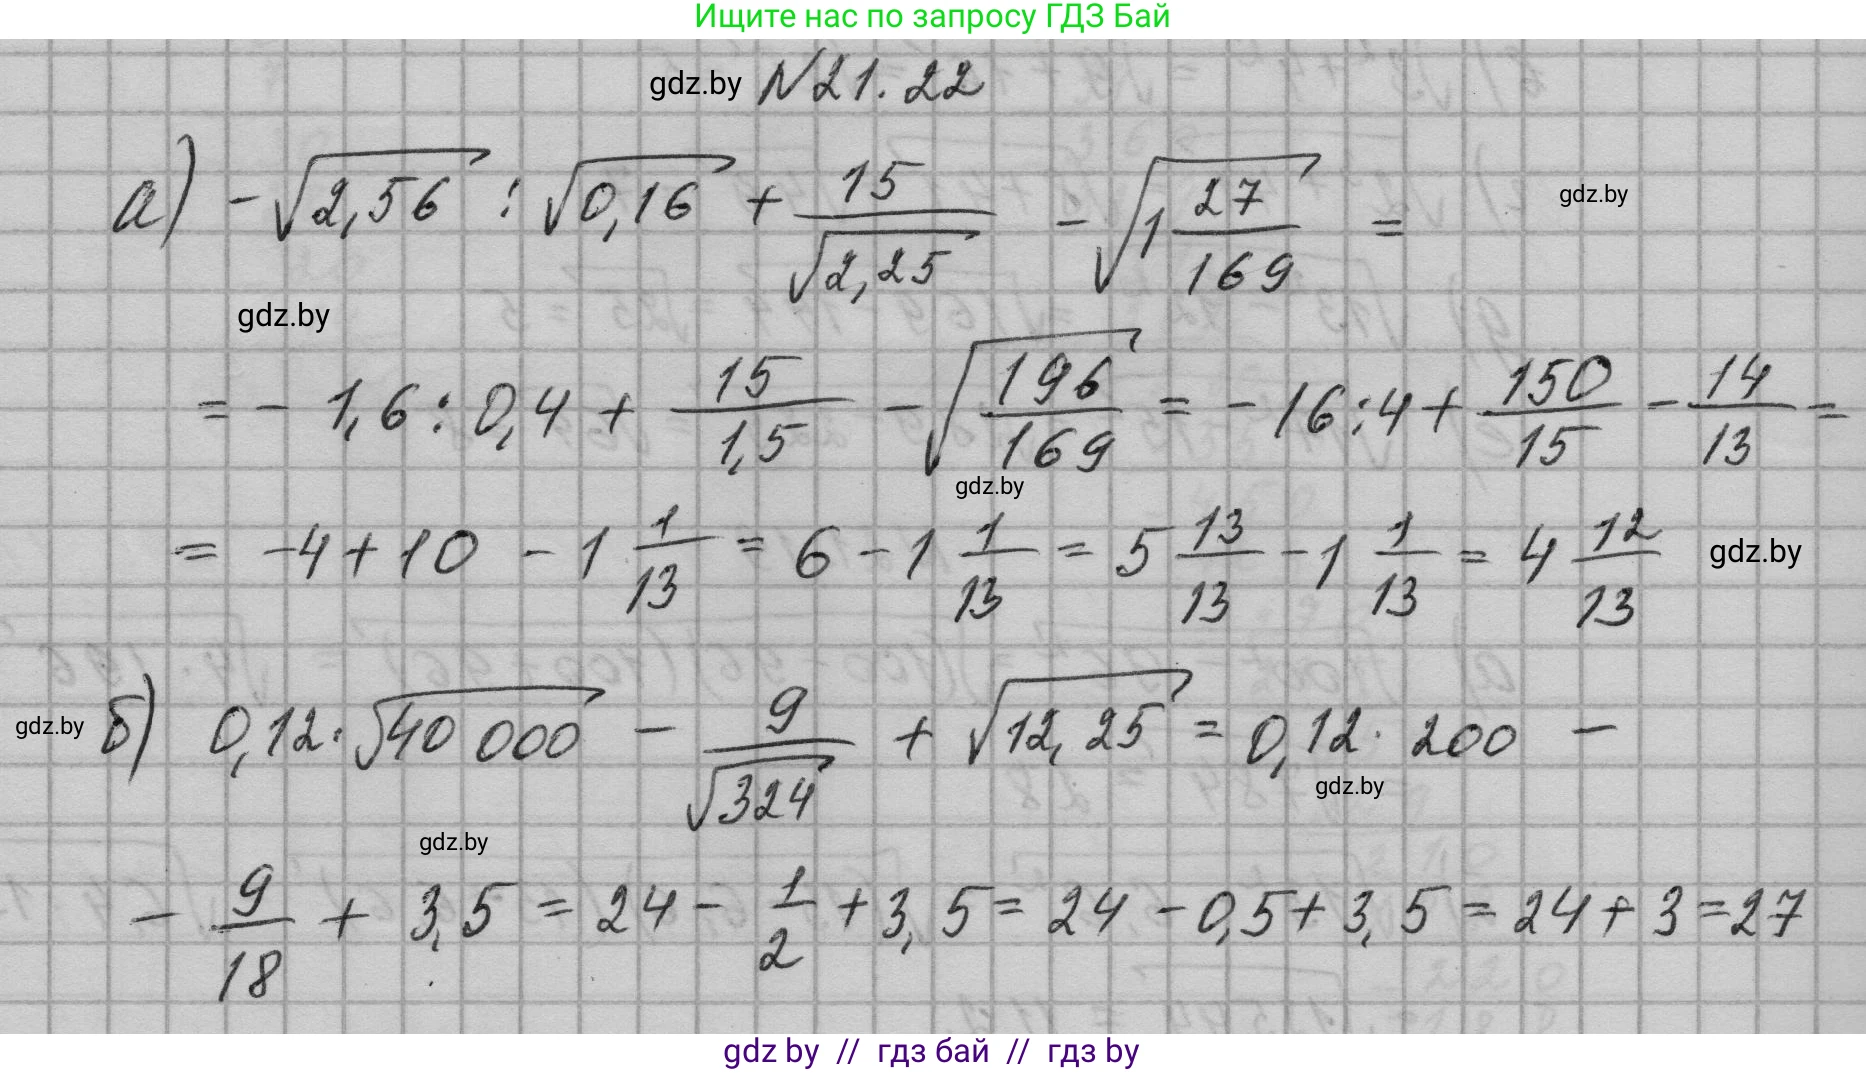 Ищите нас по запросу ГДЗ Бай
gdz.by №21.22
а) -√2,56 : √0,16 + 15/√2,25 - √(1 27/169) =
gdz.by
gdz.by
= - 1,6 : 0,4 + 15/1,5 - √(196/169) = - 16 : 4 + 150/15 - 14/13 =
gdz.by
= -4 + 10 - 1 1/13 = 6 - 1 1/13 = 5 13/13 - 1 1/13 = 4 12/13 gdz.by
gdz.by б) 0,12 · √40 000 - 9/√324 + √12,25 = 0,12 · 200 -
gdz.by
gdz.by
- 9/18 + 3,5 = 24 - 1/2 + 3,5 = 24 - 0,5 + 3,5 = 24 + 3 = 27
gdz by // гдз бай // гдз by